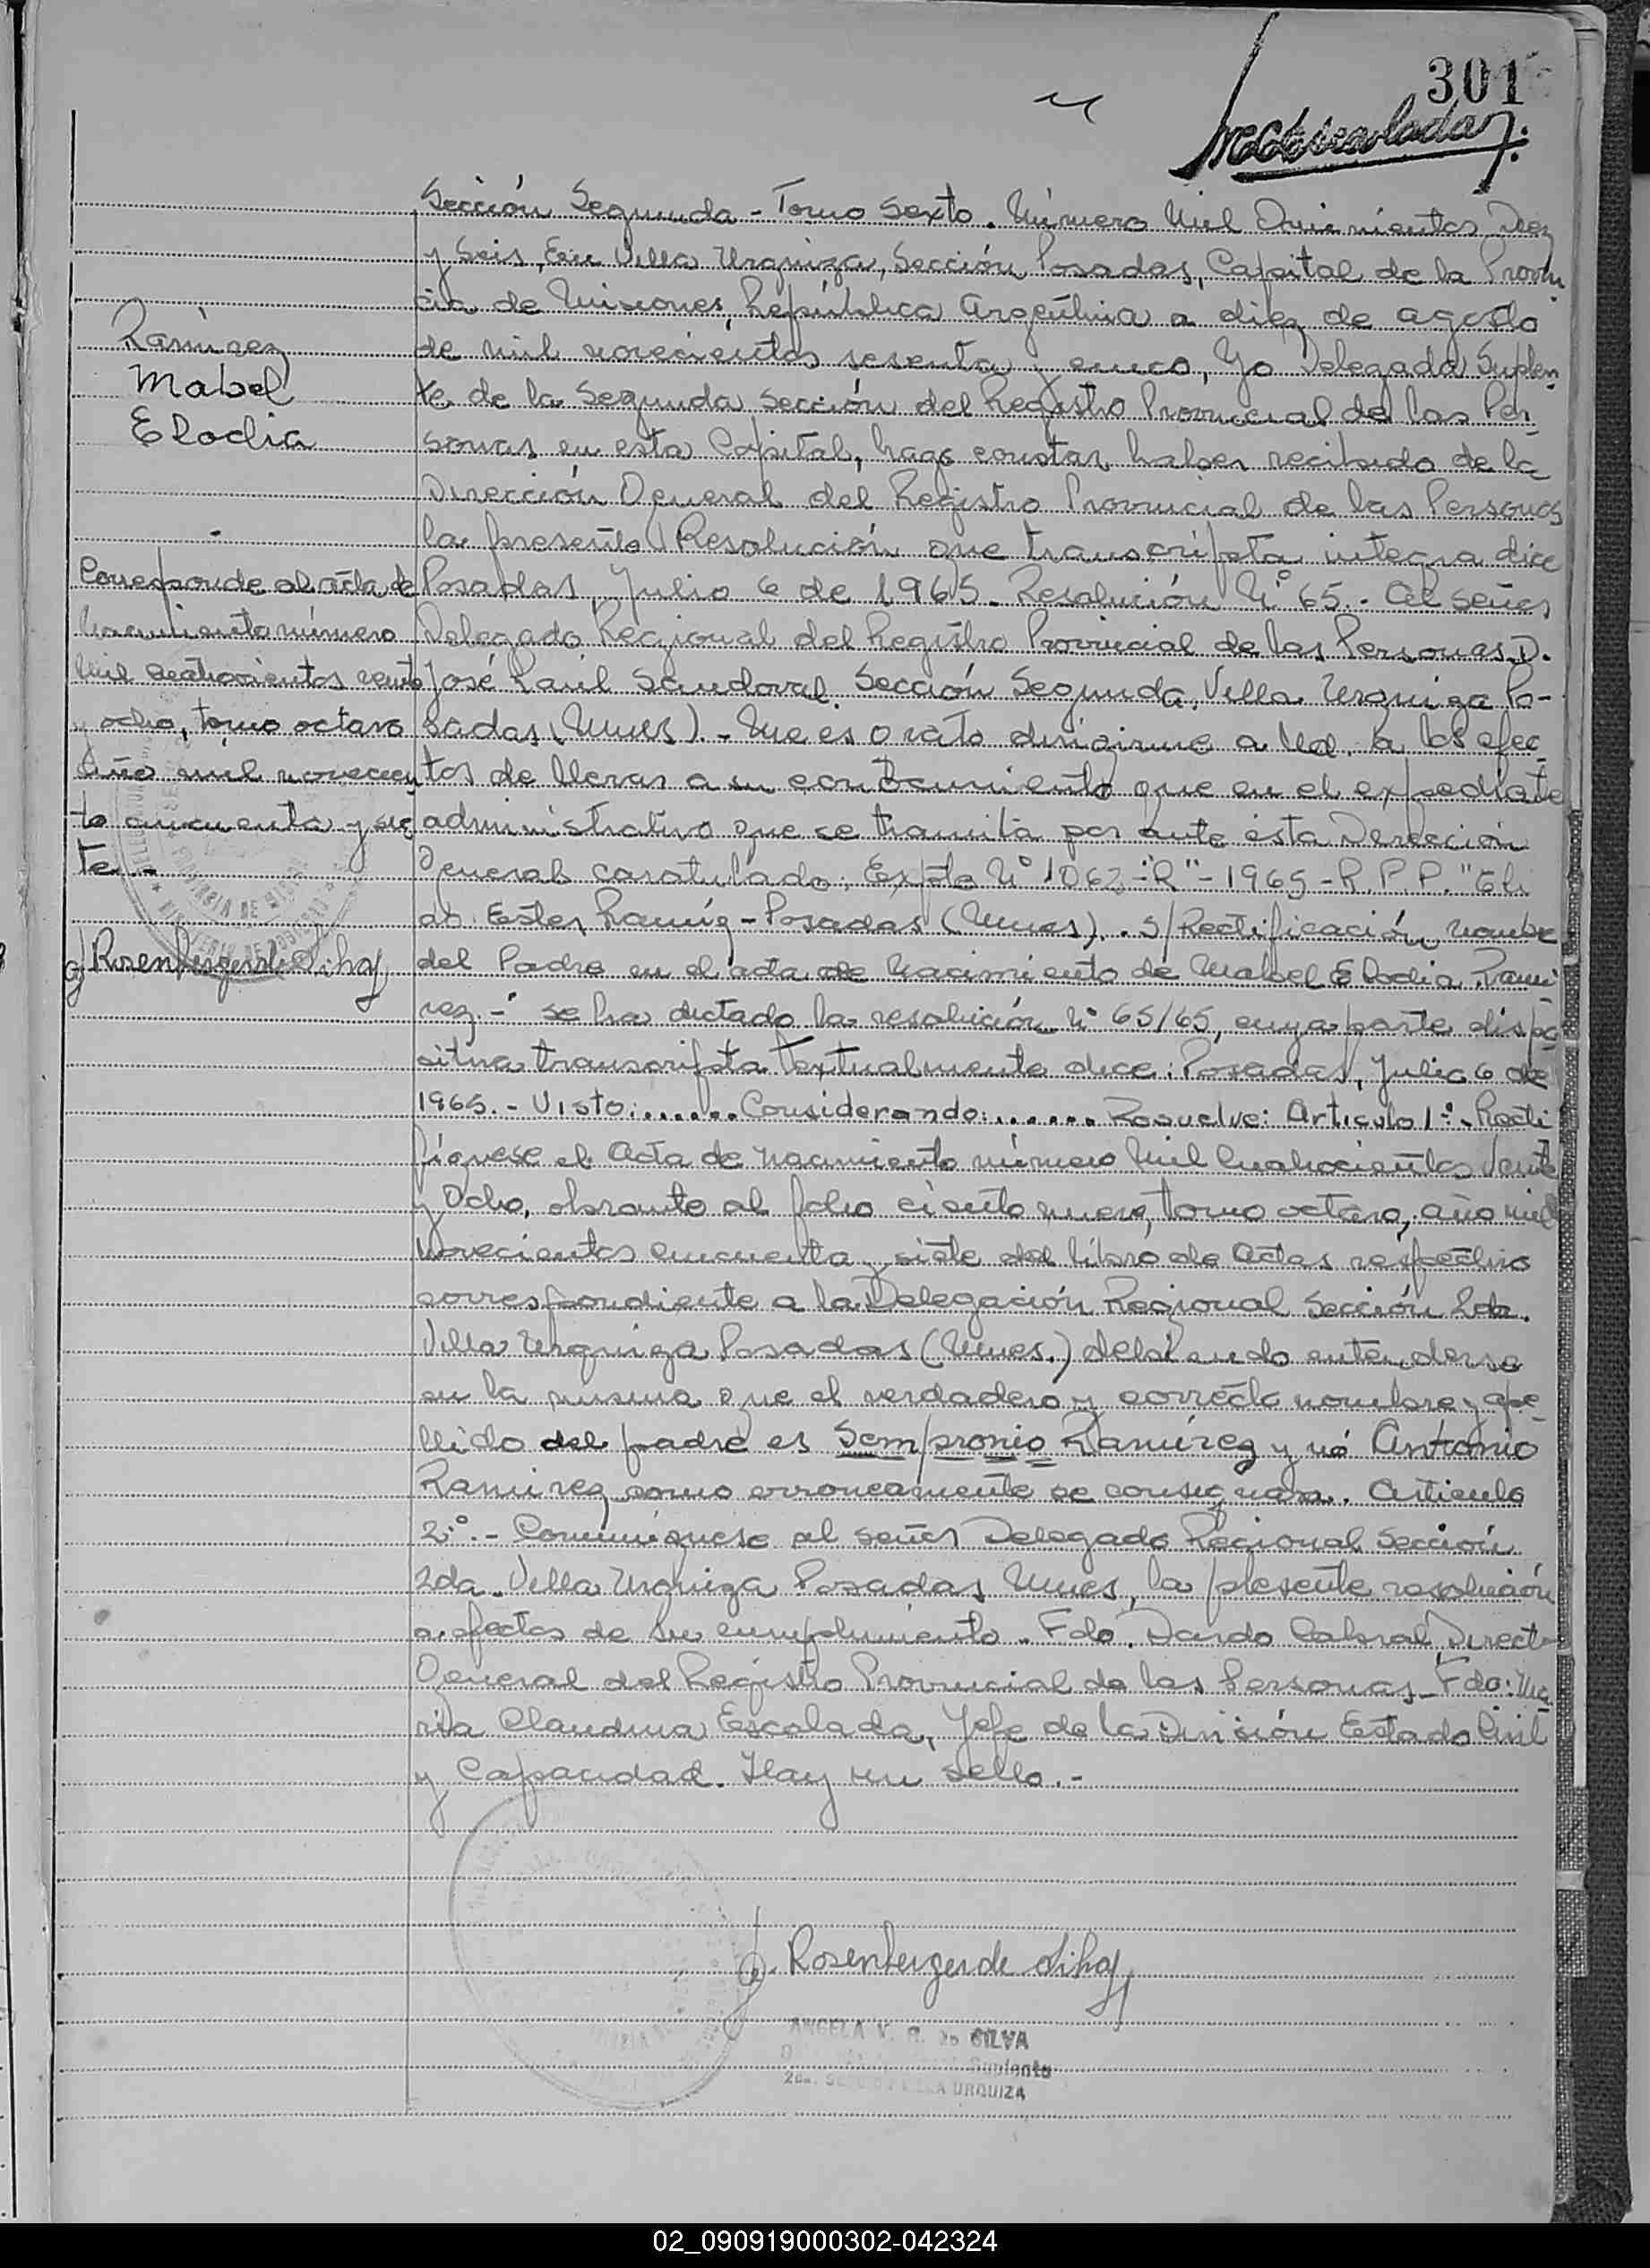 301
Sección Segunda - Tomo Sexto. Número Mil Quinientos Diez
y Seis, En Villa Urquiza, Sección Posadas, Capital de la Provin
cia de Misiones, República Argentina a diez de agosto
Ramirez
de mil novecientos sesenta y cinco, Yo Delegada Suplen-
Mabel
te de la Segunda Sección del Registro Provincial de las Per
Elodia
sonas en esta Capital, hago constar haber recibido de la
Dirección General del Registro Provincial de las Personas
la presente Resolución que transcripta integra dice
Corresponde al acta de
Posadas, Julio 6 de 1965. Resolución Nº 65.- Al señor
Nacimiento número
Delegado Regional del Registro Provincial de las Personas D.
mil cuatrocientos veinte
José Raúl Sandoval. Sección Segunda, Villa Urquiza Po-
y ocho, tomo octavo
sadas (Mnes).- Me es grato dirigirme a Ud. a los efec-
Año mil novecien
tos de llevar a su conocimiento que en el expediente
to cincuenta y sie
administrativo que se tramita por ante ésta Dirección
te.-
General caratulado: Expte Nº 1063-"R"-1965-R.P.P. "
Ester Ramirez - Posadas (Mnes). S/Rectificación nombre
Rosenberger de Silva
del Padre en el acta de Nacimiento de Mabel Elodia Rami-
rez.-" se ha dictado la resolución Nº 65/65, cuya parte dispo-
sitiva transcripta textualmente dice: Posadas, Julio 6 de
1965.- Visto:....... Considerando:....... Resuelve: Artículo 1º.- Recti
fíquese el Acta de Nacimiento número Mil Cuatrocientos Veinte
y Ocho, obrante al folio ciento nueve, tomo octavo, año mil
novecientos cincuenta y siete del libro de Actas respectivo
correspondiente a la Delegación Regional Sección 2da.
Villa Urquiza Posadas (Mnes.) debiendo entenderse
en la misma que el verdadero y correcto nombre y ape-
llido del padre es Sempronio Ramírez y nó Antonio
Ramirez como erroneamente se consignara. Artículo
2º.- Comuníquese al señor Delegado Regional Sección
2da. Villa Urquiza Posadas Mnes, la presente resolución
a efectos de su cumplimiento. Fdo. Dardo Cabral Director
General del Registro Provincial de las Personas.- Fdo: Ma-
ria Claudina Escalada, Jefe de la División Estado Civil
y Capacidad. Hay un sello.-
Rosenberger de Silva
ANGELA V. R. de SILVA
Suplente
2da. URQUIZA
02_090919000302-042324